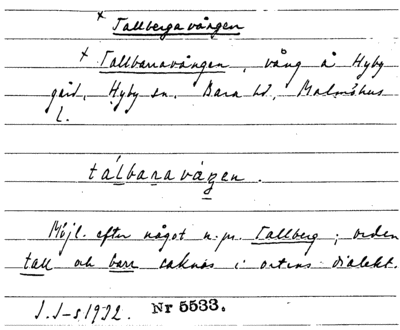 × Tallbergavången
× Tallbarravången, vång å Hyby
gård, Hyby sn. Bara hd, Malmöhus
l.
tálbaravåŋen.
Möjl. efter något n.pr. Tallberg; orden
tall och barr saknas i ortens dialekt.
I.I-s 1932. Nr 5533.